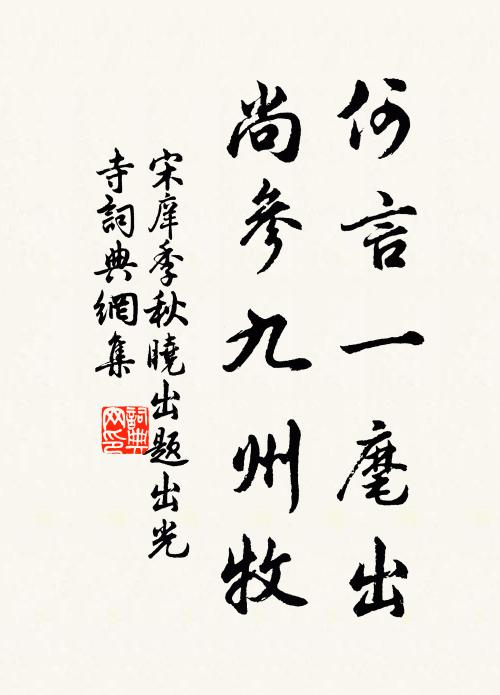 何言一麾出
尚參九州牧
宋庠季秋曉出題出光
寺詞典網集
詞典
网印